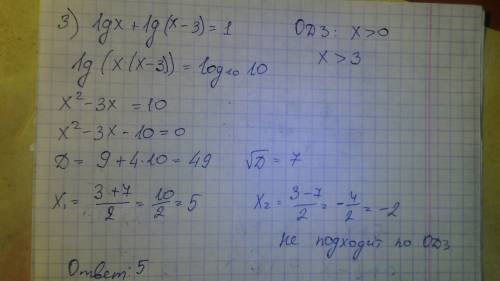 3) lgx + lg(x-3) = 1 ОДЗ: x>0
x>3
lg(x(x-3)) = log₁₀ 10
x²-3x = 10
x²-3x-10=0
D = 9+4·10 = 49 √D = 7
x₁ = (3+7)/2 = 10/2 = 5 x₂ = (3-7)/2 = -4/2 = -2
не подходит по ОДЗ
Ответ: 5